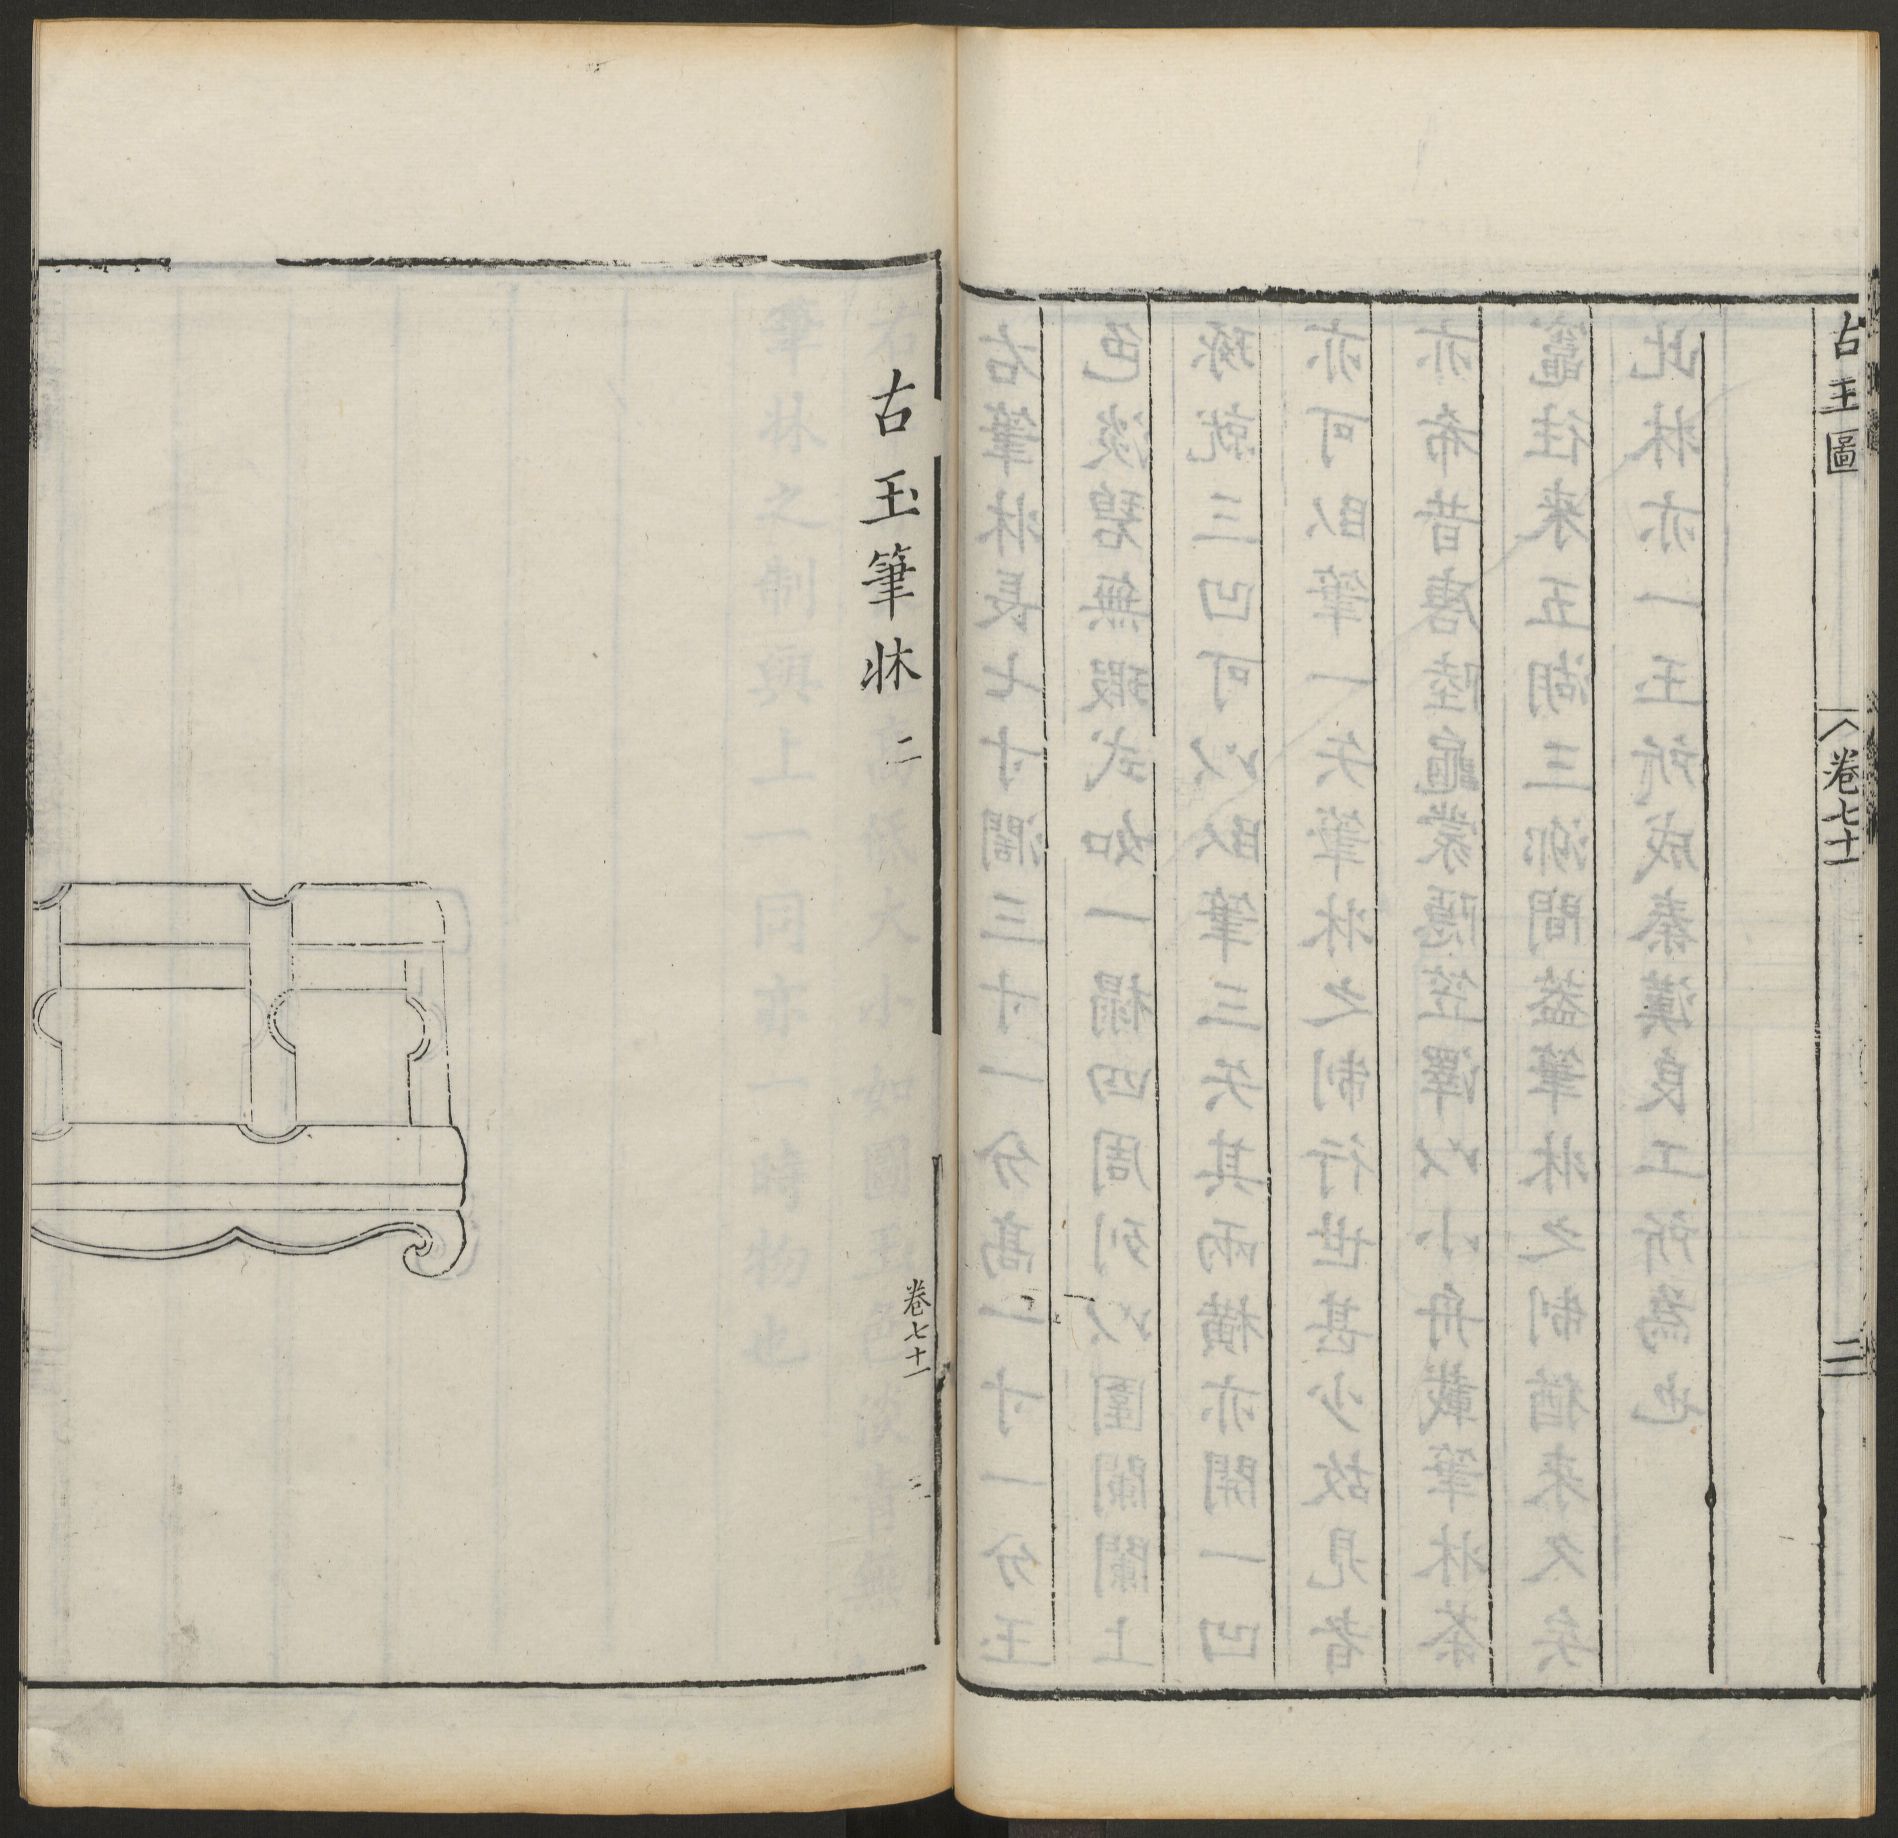 古玉圖
卷七十一
二
右筆牀長七寸濶三寸一分高一寸一分玉
色淡碧無瑕式如一榻四周列以圍闌闌上
琢就三凹可以臥筆三矢其兩橫亦開一凹
亦可臥筆一矢筆牀之制行世甚少故見者
亦希昔唐陸龜蒙隱笠澤以小舟載筆牀茶
竈往來五湖三泖間蓋筆牀之制猶來久矣
此牀亦一玉所成秦漢良工所為也
古玉筆牀 二
卷七十一
右高低大小如圖玉色淡青無
筆牀之制與上一同亦一時物也